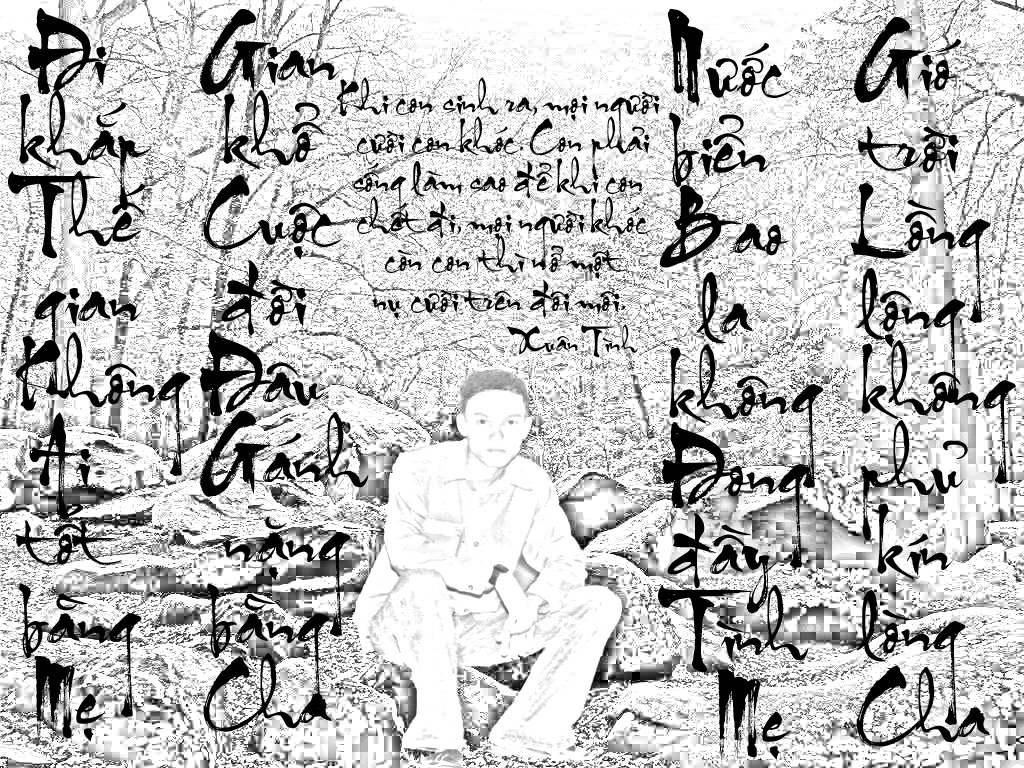 Đi khắp Thế gian Không Ai tốt bằng Mẹ
Gian khổ Cuộc đời Đâu Gánh nặng bằng Cha
Khi con sinh ra, mọi người
cười con khóc. Con phải
sống làm sao để khi con
chết đi, mọi người khóc
còn con thì nở một
nụ cười trên đôi môi.
Xuân Tình
Nước biển Bao la không Đong đầy Tình Mẹ
Gió trời Lồng lộng không phủ kín lòng Cha